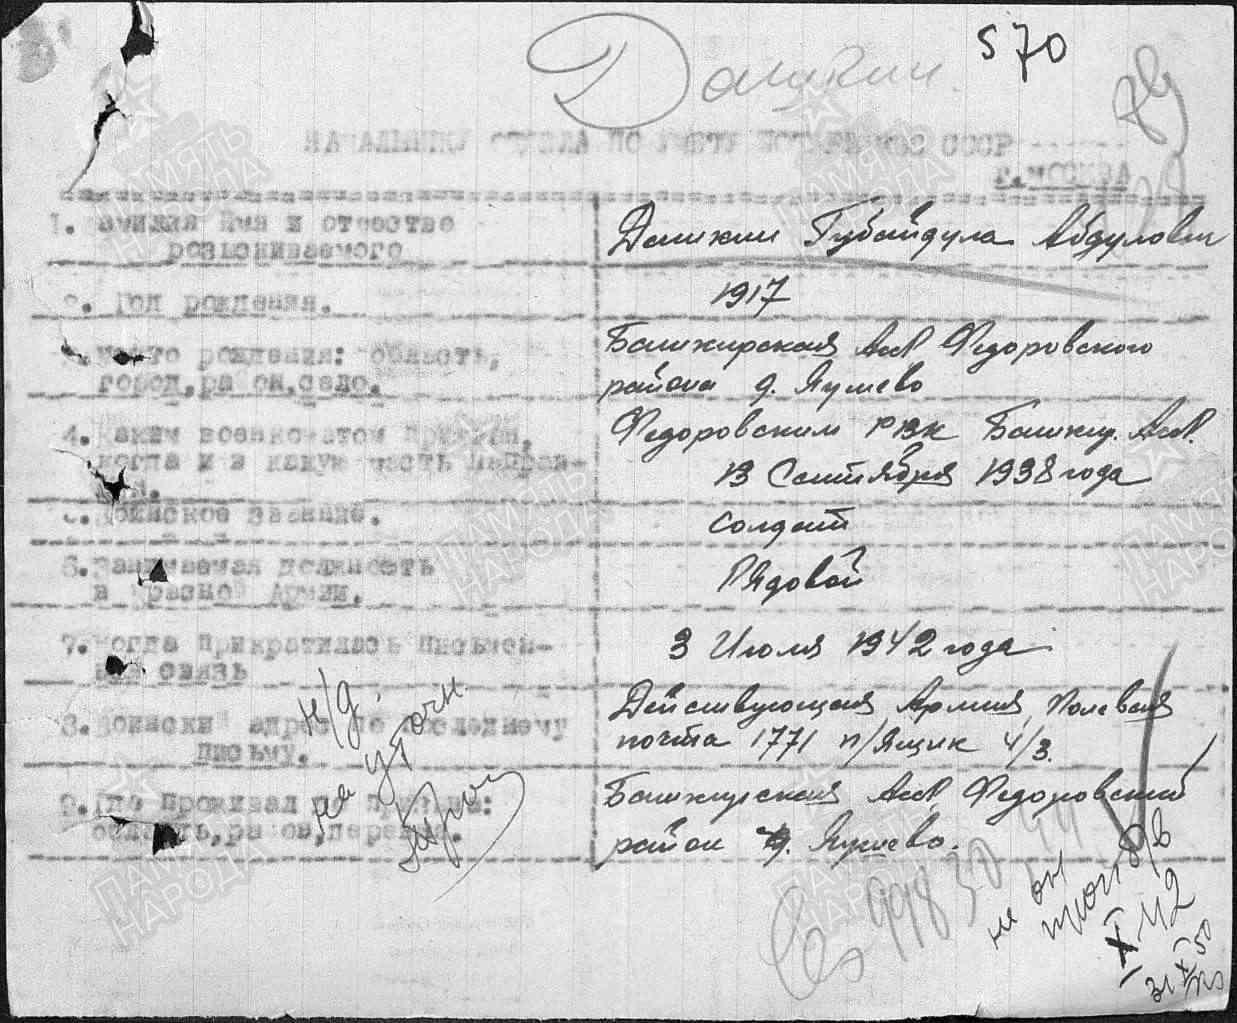 570
Данкин
НАЧАЛЬНИКУ ОТДЕЛА ПО УЧЕТУ ПОТЕРЬ СССР
Г.МОСКВА
1. Фамилия Имя и отчество
розыскиваемого
Данкин Губайдула Абдулович
2. Год рождения.
1917
3. Место рождения: область,
город, район, село.
Башкирская АССР Федоровского
района д. Яушево
4. Каким военкоматом призван,
когда и в какую часть направ-
лен.
Федоровским РВК Башкир. АССР.
13 Сентября 1938 года
5. Воинское звание.
солдат
6. Занимаемая должность
в Красной Армии.
Рядовой
7. Когда прикратилась письмен-
ная связь
3 Июля 1942 года
8. Воински адрес по последнему
письму.
Действующая Армия, Полевая
почта 1771 п/Ящик 4/3.
9. Где проживал до призыва:
область, район, деревня.
Башкирская АССР, Федоровский
район д. Яушево.
н/д
на уточн
99830
не он
проп б/в
XI 42
31 X 50
ПАМЯТЬ
НАРОДА